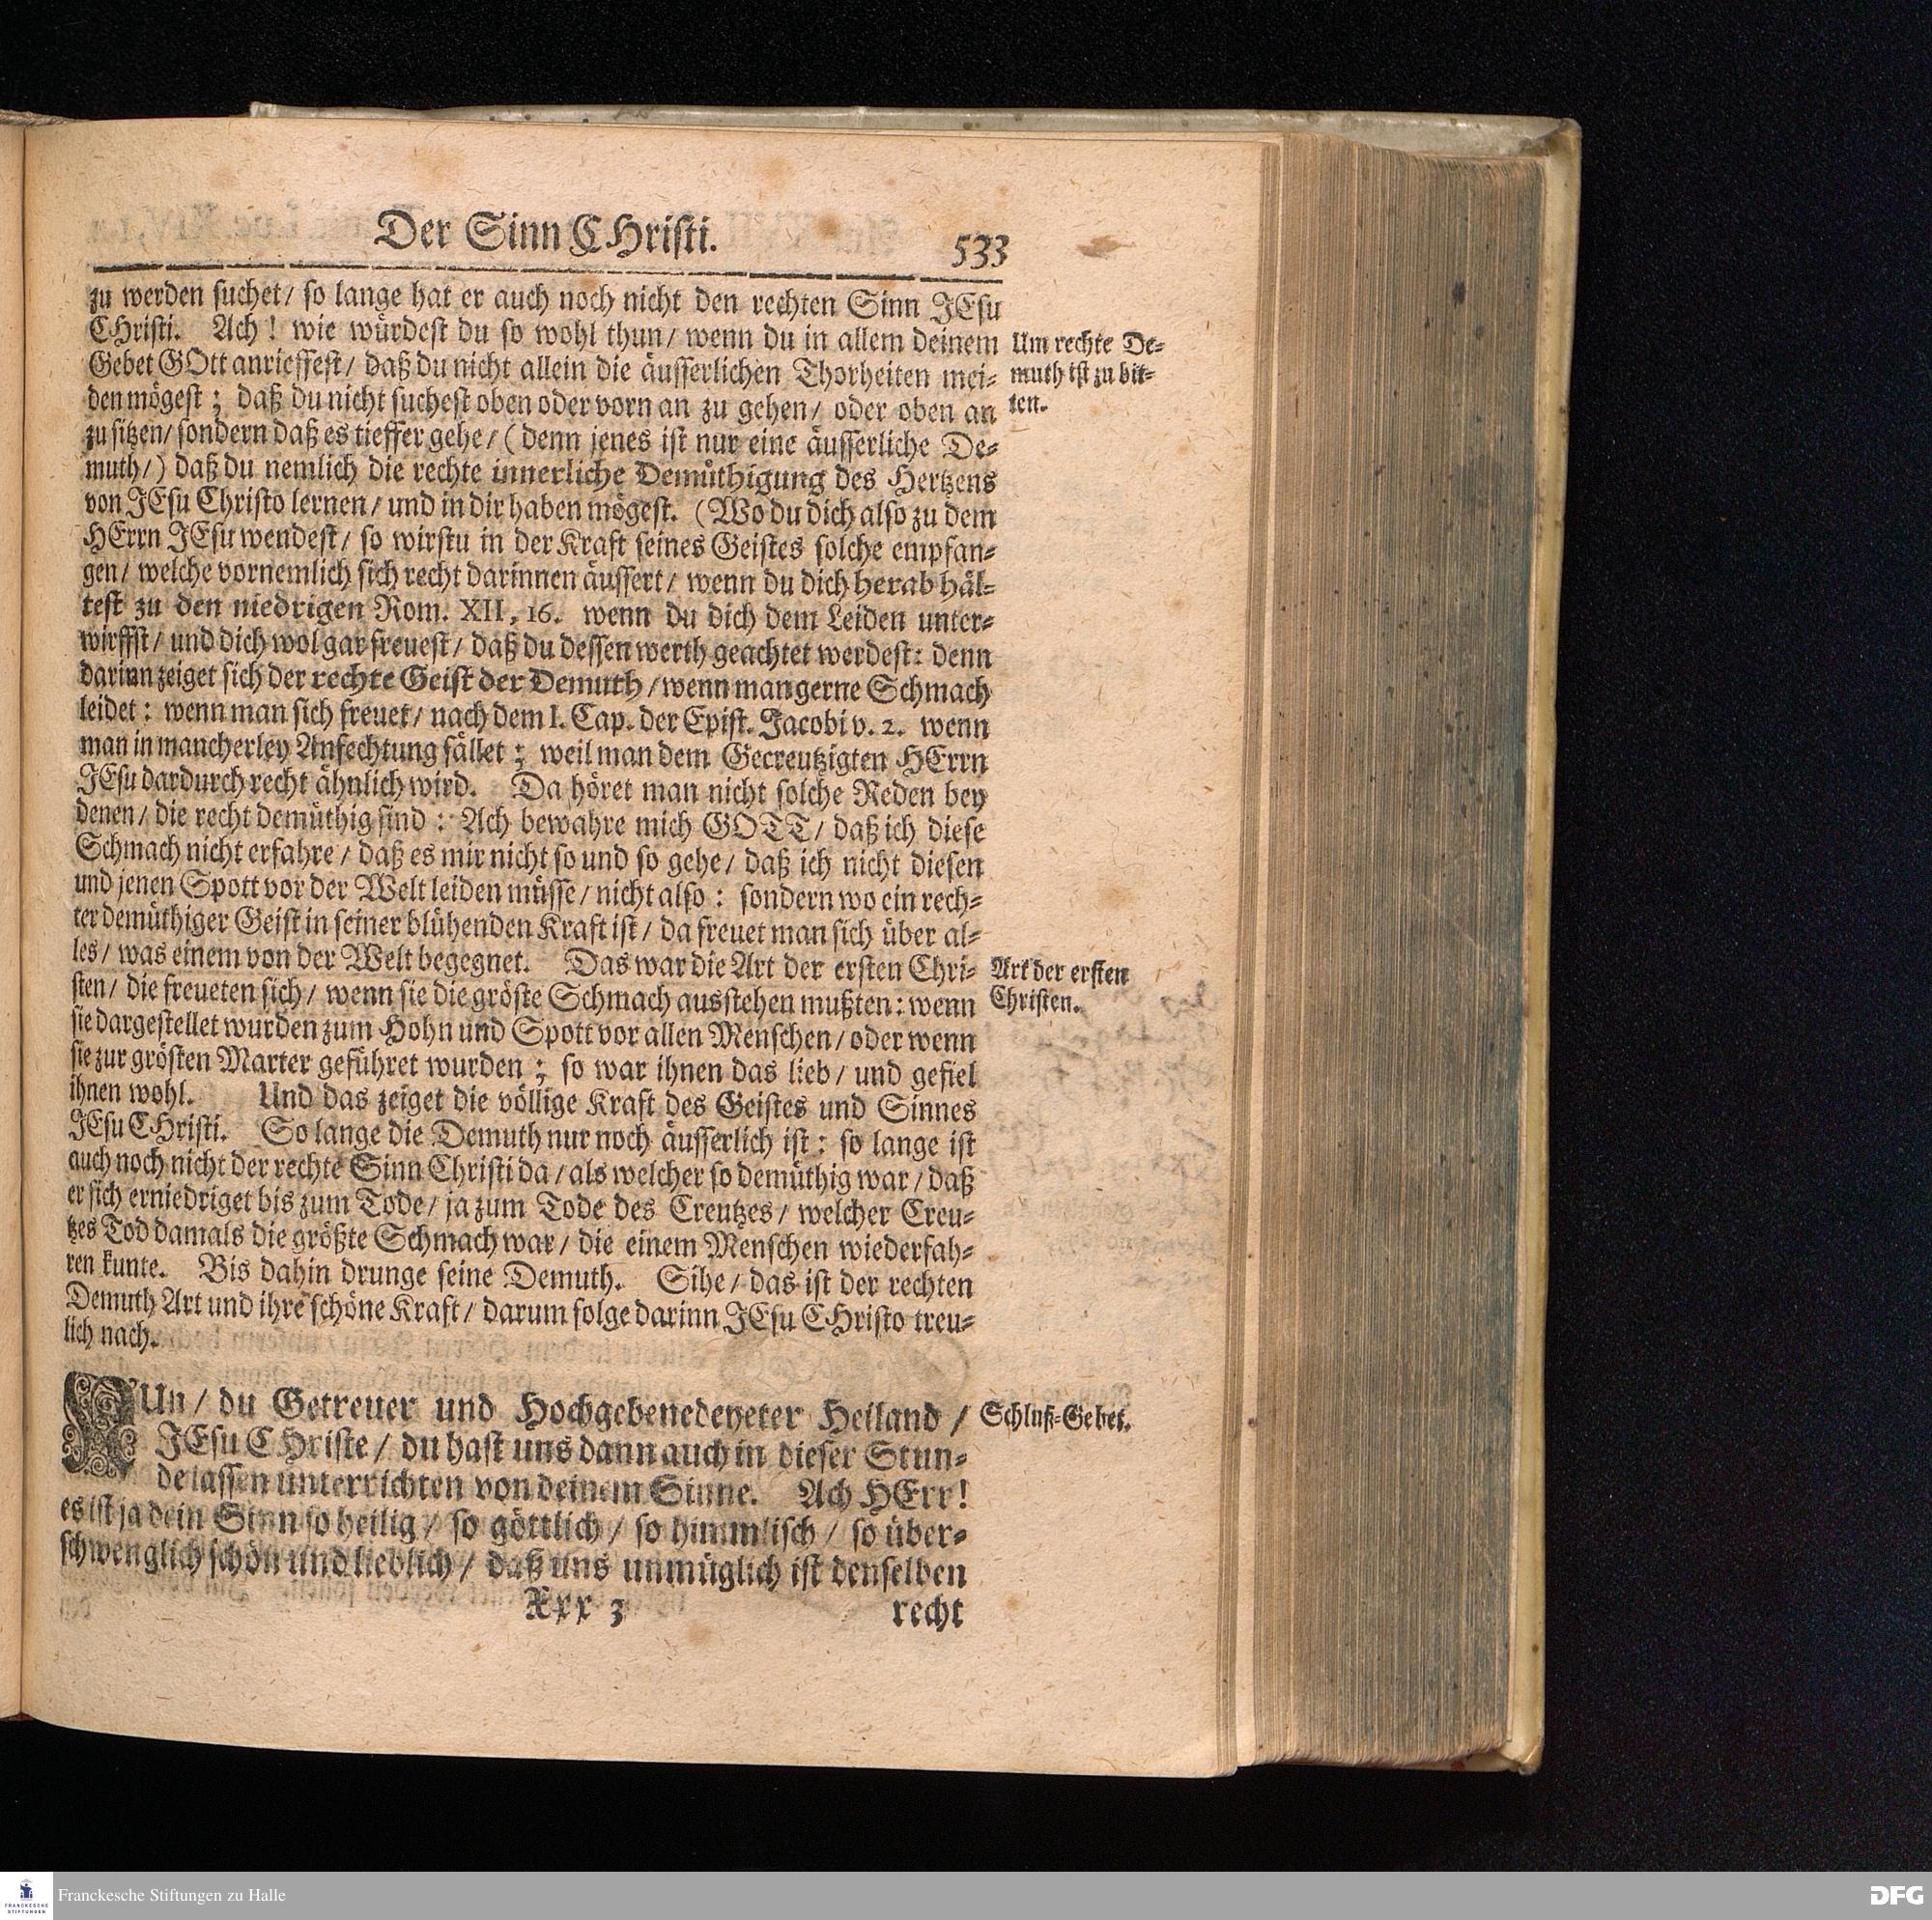 Der Sinn CHristi. 533
zu werden suchet/ so lange hat er auch noch nicht den rechten Sinn JEsu
CHristi. Ach! wie würdest du so wohl thun/ wenn du in allem deinem
Um rechte De-
Gebet GOtt anrieffest/ daß du nicht allein die äusserlichen Thorheiten mei-
muth ist zu bit-
den mögest; daß du nicht suchest oben oder vorn an zu gehen/ oder oben an
ten.
zu sitzen/ sondern daß es tieffer gehe/ (denn jenes ist nur eine äusserliche De-
muth/) daß du nemlich die rechte innerliche Demüthigung des Hertzens
von JEsu Christo lernen/ und in dir haben mögest. (Wo du dich also zu dem
HErrn JEsu wendest/ so wirstu in der Kraft seines Geistes solche empfan-
gen/ welche vornemlich sich recht darinnen äussert/ wenn du dich herab häl-
test zu den niedrigen Rom. XII, 16. wenn du dich dem Leiden unter-
wirffst/ und dich wol gar freuest/ daß du dessen werth geachtet werdest: denn
darinn zeiget sich der rechte Geist der Demuth/ wenn man gerne Schmach
leidet: wenn man sich freuet/ nach dem I. Cap. der Epist. Jacobi v. 2. wenn
man in mancherley Anfechtung fället; weil man dem Gecreutzigten HErrn
JEsu dardurch recht ähnlich wird. Da höret man nicht solche Reden bey
denen/ die recht demüthig sind: Ach bewahre mich GOTT/ daß ich diese
Schmach nicht erfahre/ daß es mir nicht so und so gehe/ daß ich nicht diesen
und jenen Spott vor der Welt leiden müsse/ nicht also: sondern wo ein rech-
ter demüthiger Geist in seiner blühenden Kraft ist/ da freuet man sich über al-
les/ was einem von der Welt begegnet. Das war die Art der ersten Chri-
Art der ersten
sten/ die freueten sich/ wenn sie die gröste Schmach ausstehen mußten: wenn
Christen.
sie dargestellet wurden zum Hohn und Spott vor allen Menschen/ oder wenn
sie zur grösten Marter geführet wurden; so war ihnen das lieb/ und gefiel
ihnen wohl. Und das zeiget die völlige Kraft des Geistes und Sinnes
JEsu CHristi. So lange die Demuth nur noch äusserlich ist: so lange ist
auch noch nicht der rechte Sinn Christi da/ als welcher so demüthig war/ daß
er sich erniedriget bis zum Tode/ ja zum Tode des Creutzes/ welcher Creu-
tzes Tod damals die größte Schmach war/ die einem Menschen wiederfah-
ren kunte. Bis dahin drunge seine Demuth. Sihe/ das ist der rechten
Demuth Art und ihre schöne Kraft/ darum folge darinn JEsu CHristo treu-
lich nach.
NUn/ du Getreuer und Hochgebenedeyeter Heiland/
Schluß-Gebet.
JEsu CHriste/ du hast uns dann auch in dieser Stun-
de lassen unterrichten von deinem Sinne. Ach HErr!
es ist ja dein Sinn so heilig/ so göttlich/ so himmlisch/ so über-
schwenglich schön und lieblich/ daß uns unmüglich ist denselben
Xxx 3 recht
Franckesche Stiftungen zu Halle
FRANCKESCHE STIFTUNGEN
DFG